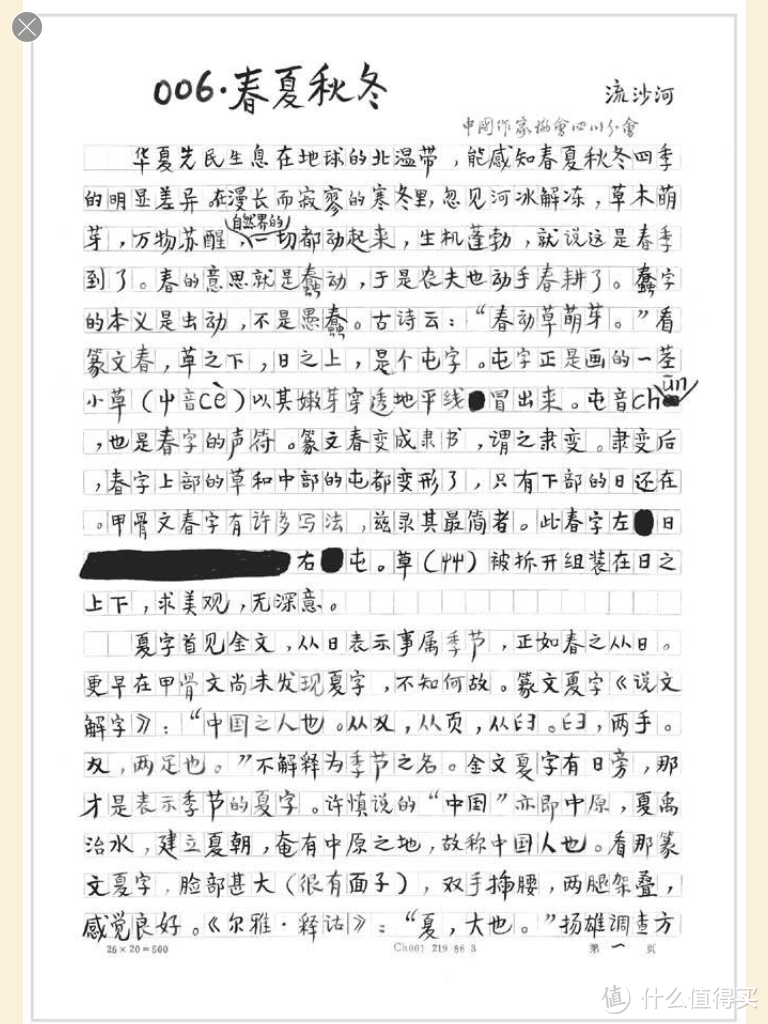 006·春夏秋冬
流沙河
中国作家協會四川分會
华夏先民生息在地球的北温带，能感知春夏秋冬四季
的明显差异 在漫长而寂寥的寒冬里，忽见河冰解冻，草木萌
自然界的
芽，万物苏醒，一切都动起来，生机蓬勃，就说这是春季
到了。春的意思就是蠢动，于是农夫也动手春耕了。蠢字
的本义是虫动，不是愚蠢。古诗云：“春动草萌芽。”看
篆文春，草之下，日之上，是个屯字。屯字正是画的一茎
小草（屮音cè）以其嫩芽穿透地平线冒出来。屯音chūn
，也是春字的声符。篆文春变成隶书，谓之隶变。隶变后
，春字上部的草和中部的屯都变形了，只有下部的日还在
。甲骨文春字有许多写法，兹录其最简者。此春字左日
右屯。草（艸）被拆开组装在日之
上下，求美观，无深意。
夏字首见金文，从日表示事属季节，正如春之从日。
更早在甲骨文尚未发现夏字，不知何故。篆文夏字《说文
解字》：“中国之人也。从夊，从页，从𦥑。𦥑，两手。
夊，两足也。”不解释为季节之名。金文夏字有日旁，那
才是表示季节的夏字。许慎说的“中国”亦即中原，夏禹
治水，建立夏朝，奄有中原之地，故称中国人也。看那篆
文夏字，脸部甚大（很有面子），双手插腰，两腿架叠，
感觉良好。《尔雅·释诂》：“夏，大也。”扬雄调查方
25×20=500
Ch001 219 86 3
第一页
值 什么值得买